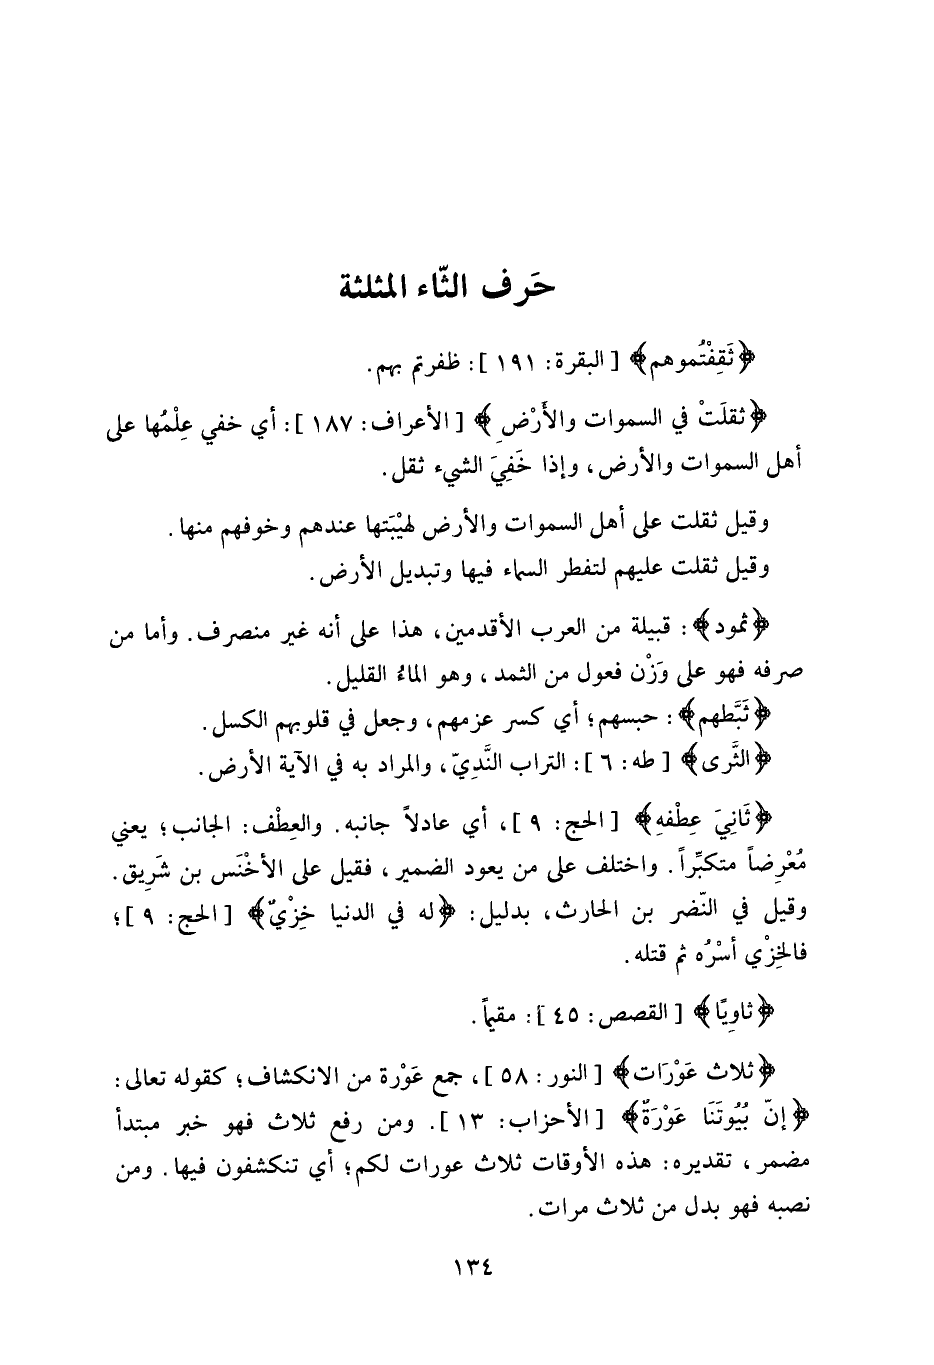 حَرف الثّاء المثلثة
﴿ثَقِفْتُموهم﴾ [البقرة: ١٩١]: ظفرتم بهم.
﴿ثقلَتْ في السموات والأَرْضِ﴾ [الأعراف: ١٨٧]: أي خفي عِلْمُها على
أهل السموات والأرض، وإذا خَفِيَ الشيء ثقل.
وقيل ثقلت على أهل السموات والأرض لهيْبَتها عندهم وخوفهم منها.
وقيل ثقلت عليهم لتفطر السماء فيها وتبديل الأرض.
﴿ثمود﴾: قبيلة من العرب الأقدمين، هذا على أنه غير منصرف. وأما من
صرفه فهو على وَزْن فعول من الثمد، وهو الماءُ القليل.
﴿ثَبَّطهم﴾: حبسهم؛ أي كسر عزمهم، وجعل في قلوبهم الكسل.
﴿الثَّرى﴾ [طه: ٦]: التراب النَّدِيّ، والمراد به في الآية الأرض.
﴿ثَانِيَ عِطْفهِ﴾ [الحج: ٩]، أي عادلاً جانبه. والعِطْف: الجانب؛ يعني
مُعْرِضاً متكبِّراً. واختلف على من يعود الضمير، فقيل على الأخْنَس بن شَرِيق.
وقيل في النّضر بن الحارث، بدليل: ﴿له في الدنيا خِزْيٌ﴾ [الحج: ٩]؛
فالخِزْي أسْرُه ثم قتله.
﴿ثاوِيًا﴾ [القصص: ٤٥]: مقيماً.
﴿ثلاث عَوْرَات﴾ [النور: ٥٨]، جمع عَوْرة من الانكشاف؛ كقوله تعالى:
﴿إنّ بُيُوتَنَا عَوْرَةٌ﴾ [الأحزاب: ١٣]. ومن رفع ثلاث فهو خبر مبتدأ
مضمر، تقديره: هذه الأوقات ثلاث عورات لكم؛ أي تنكشفون فيها. ومن
نصبه فهو بدل من ثلاث مرات.
١٣٤